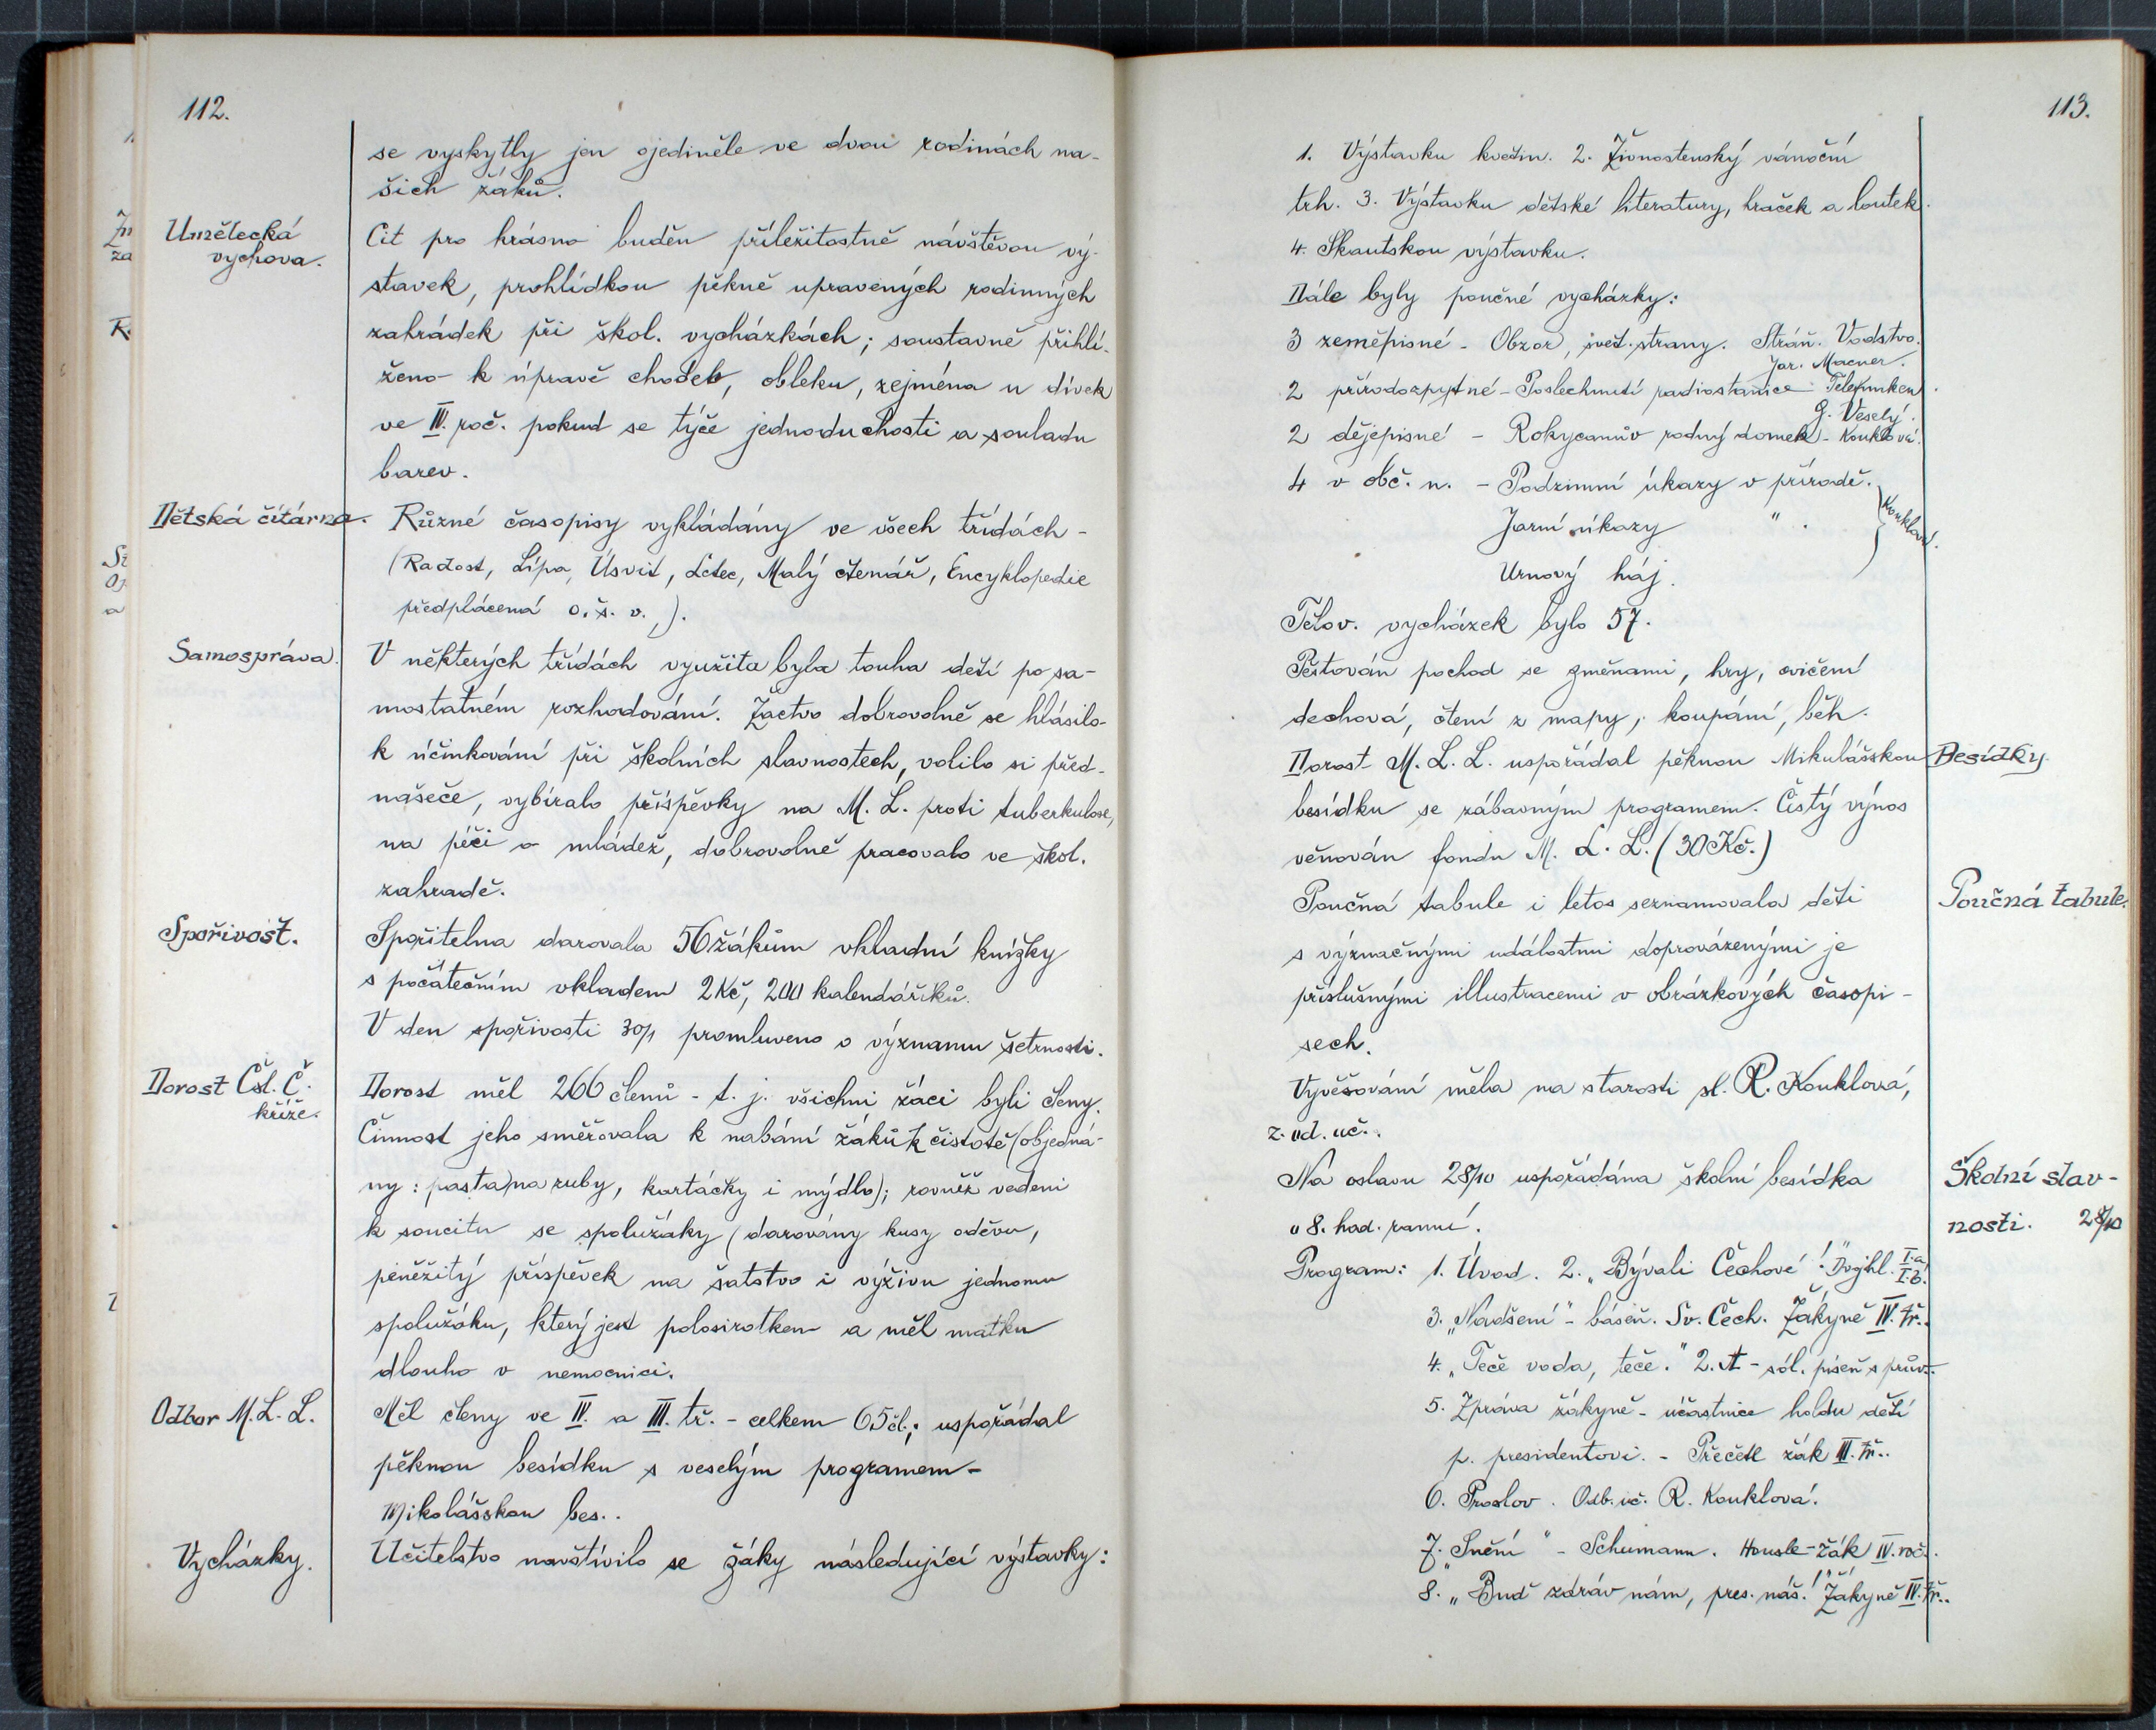 112.
se vyskytly jen ojediněle ve dvou rodinách na-
šich žáků.
Umělecká
vychova.
Cit pro krásno buděn příležitostně návštěvou vý-
stavek, prohlídkou pěkně upravených rodinných
zahrádek při škol. vycházkách; soustavně přihlí-
ženo k úpravě chodeb, obleku, zejména u dívek
ve IV. roč. pokud se týče jednoduchosti a souladu
barev.
Dětská čítárna.
Různé časopisy vykládány ve všech třídách -
(Radost, Lípa, Úsvit, Letec, Malý čtenář, Encyklopedie
předplácená o. š. v.,).
Samospráva.
V některých třídách využita byla touha dětí po sa-
mostatném rozhodování. Žactvo dobrovolně se hlásilo
k účinkování při školních slavnostech, volilo si před-
našeče, vybíralo příspěvky na M. L. proti tuberkulose,
na péči o mládež, dobrovolně pracovalo ve škol.
zahradě.
Spořivost.
Spořitelna darovala 56 žákům vkladní knížky
s počátečním vkladem 2 Kč, 200 kalendáříků.
V den spořivosti promluveno o významu šetrnosti.
Dorost Čsl. Č.
kříže.
Dorost měl 266 členů - t. j. všichni žáci byli členy.
Činnost jeho směřovala k nabání žáků k čistotě (objedná-
ny: pasta na zuby, kartáčky i mýdlo); rovněž vedeni
k soucitu se spolužáky (darovány kusy oděvu,
peněžitý příspěvek na šatstvo i výživu jednomu
spolužáku, který jest polosirotkem a měl matku
dlouho v nemocnici.
Odbor M. L. L.
Měl členy ve IV. a III. tř. - celkem 65 čl.; uspořádal
pěknou besídku s veselým programem -
Mikolášskou bes..
Vycházky.
Učitelstvo navštívilo se žáky následující výstavky:
113.
1. Výstavku květin. 2. Živnostenský vánoční
trh. 3. Výstavku dětské literatury, hraček a loutek.
4. Skautskou výstavku.
Dále byly poučné vycházky:
3 zeměpisné - Obzor, svět. strany. Stráň. Vodstvo.
Jar. Macner.
2 přírodozpytné - Poslechnutí radiostanice Telefunken.
G. Veselý.
2 dějepisné - Rokycanův rodný domek - Kouklová.
4 v obč. n. - Podzimní úkazy v přírodě.
Jarní úkazy " .
Kouklová.
Urnový háj.
Tělov. vycházek bylo 57.
Pěstován pochod se změnami, hry, cvičení
dechová, čtení z mapy, koupání, běh.
Besídky.
Dorost M. L. L. uspořádal pěknou Mikulášskou
besídku se zábavným programem. Čistý výnos
věnován fondu M. L. L. (30 Kč.)
Poučná tabule.
Poučná tabule i letos seznamovala děti
s význačnými událostmi doprovázenými je
příslušnými illustracemi v obrázkových časopi-
sech.
Vyvěšování měla na starosti sl. R. Kouklová,
z. od. uč..
Školní slav-
nosti. 28/10
Na oslavu 28/10 uspořádána školní besídka
o 8. hod. ranní.
Program: 1. Úvod. 2. „Bývali Čechové!" Dvojhl. I.a, I.b.
3. „Nadšení" - báseň. Sv. Čech. Žákyně IV. tř..
4. „Teče voda, teče." 2. A - sól. píseň s prův..
5. Zpráva žákyně - účastnice holdu dětí
p. presidentovi. - Přečetl žák III. tř..
6. Proslov. Odb. uč. R. Kouklová.
7. „Snění" - Schumann. Housle - žák IV. roč..
8. „Buď zdráv nám, pres. náš!" Žákyně IV. tř..